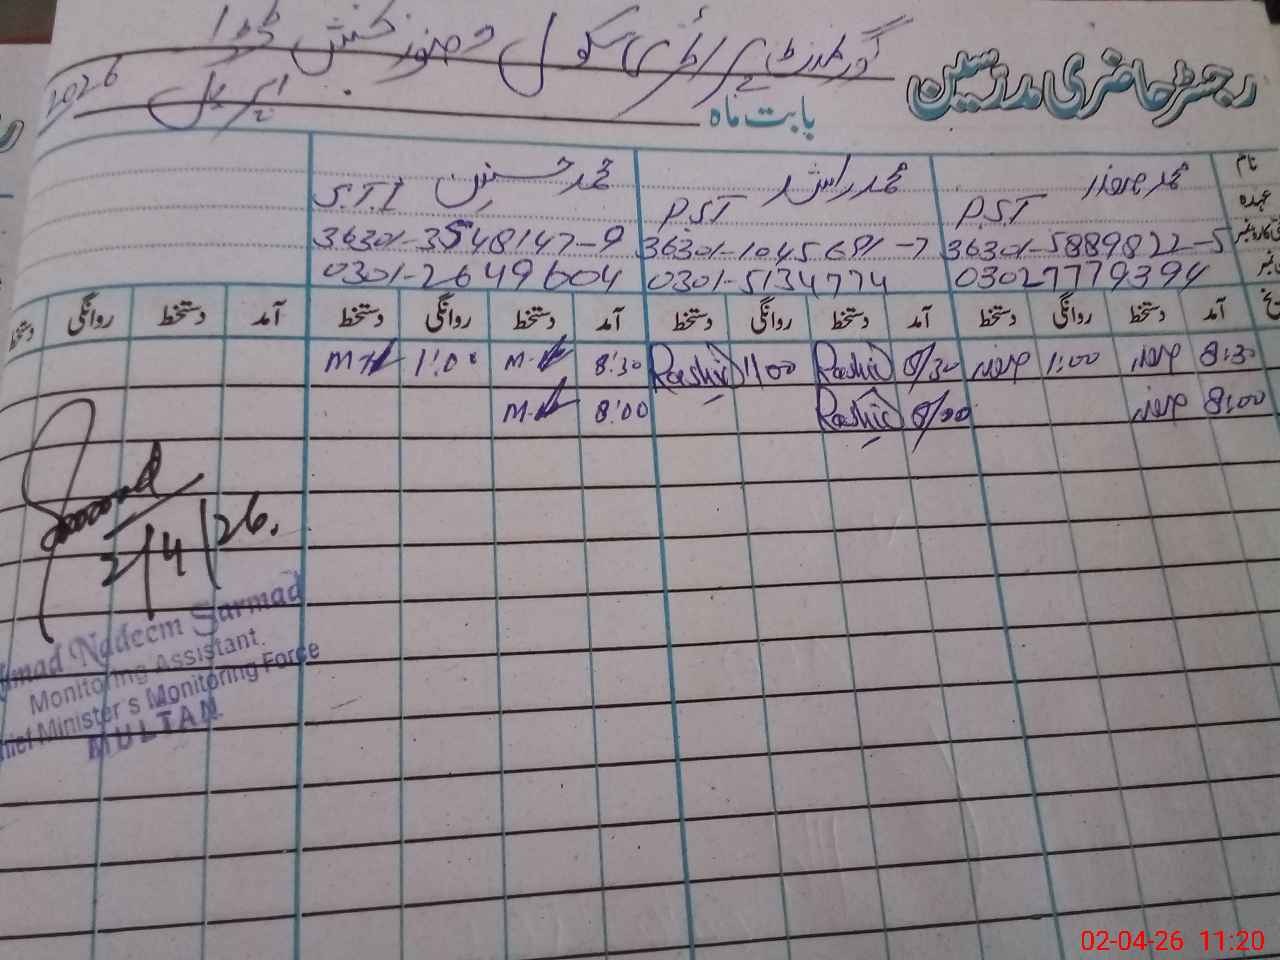 رجسٹر حاضری مدرسین
گورنمنٹ پرائمری سکول
بابت ماہ اپریل 2026
نام محمد صفدر محمد راشد محمد حسنین
عہدہ P.S.T P.S.T S.T.I
36301-5889822-5 36301-1045691-7 36301-3548147-9
03027779394 0301-5134774 0301-2649604
آمد دستخط روانگی دستخط آمد دستخط روانگی دستخط آمد دستخط روانگی دستخط آمد دستخط روانگی دستخط
8:30 صفدر 1:00 صفدر 8/30 Rashid 1/00 Rashid 8:30 1:00
8:00 صفدر 8/00 Rashid 8:00
2/4/26.
Nadeem Sarmad
Monitoring Assistant.
Minister's Monitoring Force
MULTAN
02-04-26 11:20